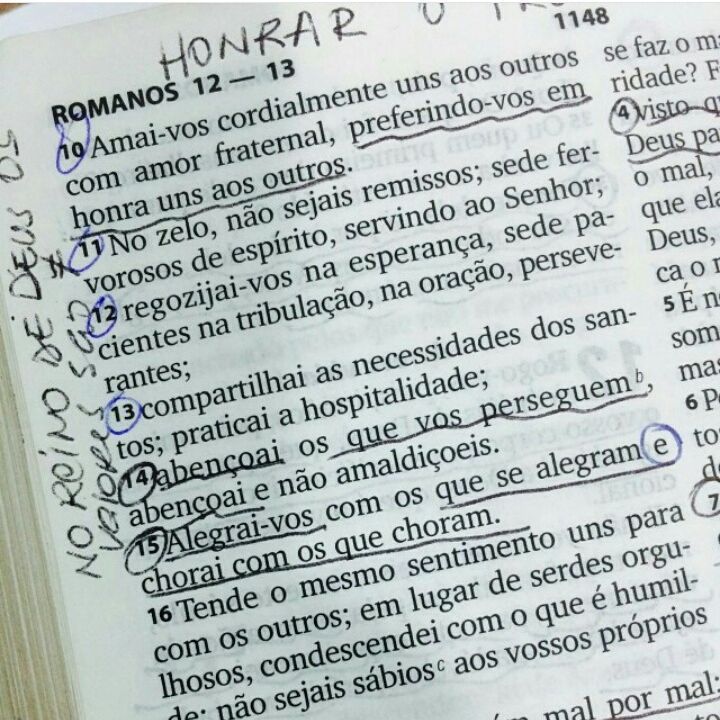 HONRAR O
1148
ROMANOS 12 — 13
10 Amai-vos cordialmente uns aos outros
com amor fraternal, preferindo-vos em
honra uns aos outros.
11 No zelo, não sejais remissos; sede fer-
vorosos de espírito, servindo ao Senhor;
12 regozijai-vos na esperança, sede pa-
cientes na tribulação, na oração, perseve-
rantes;
13 compartilhai as necessidades dos san-
tos; praticai a hospitalidade;
14 abençoai os que vos perseguem b,
abençoai e não amaldiçoeis.
15 Alegrai-vos com os que se alegram e
chorai com os que choram.
16 Tende o mesmo sentimento uns para
com os outros; em lugar de serdes orgu-
lhosos, condescendei com o que é humil-
de; não sejais sábios c aos vossos próprios
mal por mal;
NO REINO DE DEUS OS
VALORES SÃO ≠
se faz o m
ridade?
4 visto q
Deus pa
o mal,
que ela
Deus,
ca o
5 É n
som
mas
6 P
to
d
7